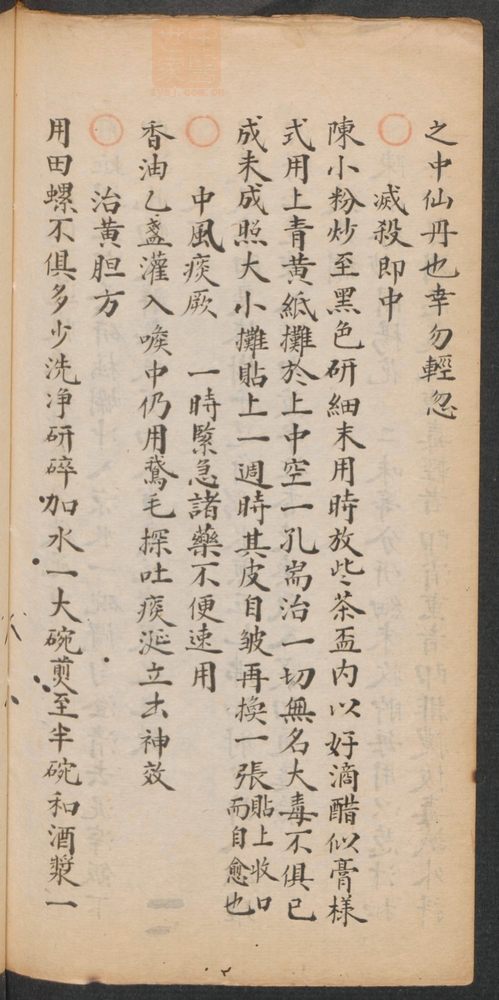 之中仙丹也幸勿輕忽
滅殺即中
陳小粉炒至黑色研細末用時放些茶盃内以好滴醋似膏樣
式用上青黃紙攤於上中空一孔耑治一切無名大毒不俱已
成未成照大小攤貼上一週時其皮自皺再換一張貼上收口而自愈也
中風痰厥 一時緊急諸藥不便速用
香油乙盞灌入喉中仍用鵞毛探吐痰涎立出神效
治黃胆方
用田螺不俱多少洗净研碎加水一大碗煎至半碗和酒漿一